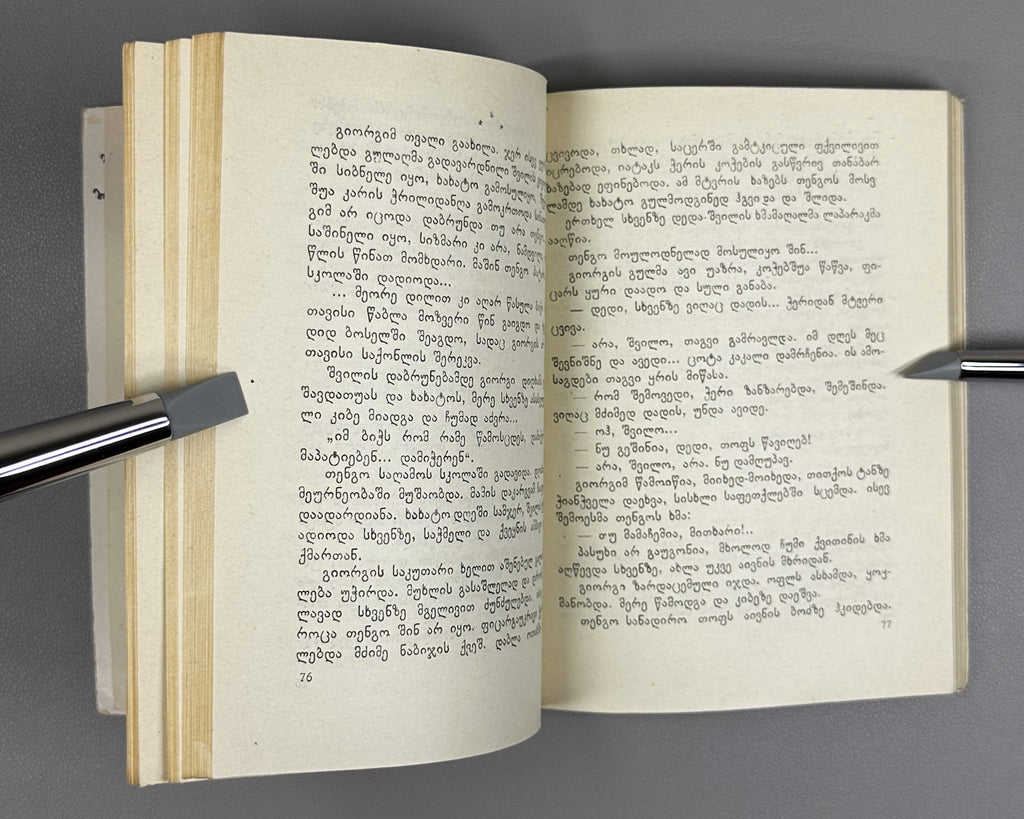 * * *
გიორგიმ თვალი გაახილა. ჯერ ისევ
ლებდა გულაღმა გადავარდნილი შვილის
ში სიბნელე იყო, ხახატო გამოსულიყო,
შუა კარის ჭრილიდანღა გამოკრთოდა
გიმ არ იცოდა დაბრუნდა თუ არა თენგო
საშინელი იყო, სიზმარი კი არა,
წლის წინათ მომხდარი. მაშინ თენგო
სკოლაში დადიოდა...
... მეორე დილით კი აღარ წასულა
თავისი წაბლა მოზვერი წინ გაიგდო და
დიდ ბოსელში შეაგდო, სადაც გიორგის
თავისი საქონლის შერეკვა.
შვილის დაბრუნებამდე გიორგი
შავდათუას და ხახატოს, მერე სხვენზე
ლი კიბე მიადგა და ჩუმად აძვრა...
„იმ ბიჭს რომ რამე წამოსცდეს,
მაპატიებენ... დამიჭერენ“.
თენგო საღამოს სკოლაში გადავიდა.
მეურნეობაში მუშაობდა. მამის დაკარგვამ
დაადარდიანა. ხახატო დღეში სამჯერ,
ადიოდა სხვენზე, საჭმელი და ქვეყნის
ქმართან.
გიორგის საკუთარი ხელით აშენებულ
ლება უჭირდა. მუხლის გასაშლელად და
ლავად სხვენზე მგელივით ძუნძულებდა.
როცა თენგო შინ არ იყო. ფიცარგაუკრავი
ლებდა მძიმე ნაბიჯის ქვეშ. დაბლა
76
ცვივოდა, თხლად, საცერში გამტკიცული ფქვილივით
იცრებოდა, იატაკს ჭერის კოჭების გასწვრივ თანაბარ
ხაზებად ეფინებოდა. ამ მტვრის ხაზებს თენგოს მოსვ
ლამდე ხახატო გულმოდგინედ ჰგვიდა და შლიდა.
ერთხელ სხვენზე დედა-შვილის ხმამაღალმა ლაპარაკმა
ააღწია.
თენგო მოულოდნელად მოსულიყო შინ...
გიორგის გულმა ავი უაზრა, კოჭებშუა წაწვა, ფი-
ცარს ყური დაადო და სული განაბა.
— დედი, სხვენზე ვიღაც დადის... ჭერიდან მტვერი
ცვივა.
— არა, შვილო, თაგვი გამრავლდა. იმ დღეს მეც
შევნიშნე და ავედი... ცოტა კაკალი დამრჩენია. ის ამო-
საგდები თაგვი ყრის მიწასა.
— რომ შემოვედი, ჭერი ზანზარებდა, შემეშინდა.
ვიღაც მძიმედ დადის, უნდა ავიდე.
— ოჰ, შვილო...
— ნუ გეშინია, დედი, თოფს წავიღებ!
— არა, შვილო, არა. ნუ დამღუპავ.
გიორგიმ წამოიწია, მიიხედ-მოიხედა, თითქოს ტანზე
ჭიანჭველა დაეხვა, სისხლი საფეთქლებში სცემდა. ისევ
შემოესმა თენგოს ხმა:
— თუ მამაჩემია, მითხარი!..
პასუხი არ გაუგონია, მხოლოდ ჩუმი ქვითინის ხმა
აღწევდა სხვენზე, ახლა უკვე აივნის მხრიდან.
გიორგი ზარდაცემული იჯდა. ოფლს ასხამდა, ყოყ-
მანობდა. მერე წამოდგა და კიბეზე დაეშვა.
თენგო სანადირო თოფს აივნის ბოძზე ჰკიდებდა.
77